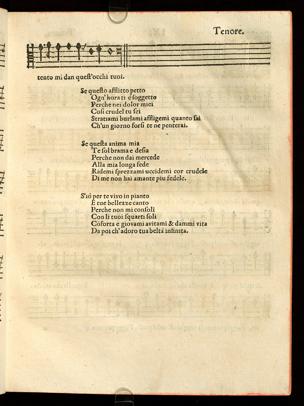 Tenore.
tento mi dan quest'occhi tuoi.
Se questo afflitto petto
Ogn'hora ti è soggetto
Perche nei dolor miei
Così crudel tu sei
Stratiami burlami affligemi quanto sai
Ch'un giorno forsi te ne penterai.
Se questa anima mia
Te sol brama e desia
Perche non dai mercede
Alla mia longa fede
Ridemi sprezzami uccidemi cor crudele
Di me non hai amante piu fedele.
S'iò per te vivo in pianto
E tue bellezze canto
Perche non mi consoli
Con li tuoi squarti soli
Cōforta e giovami avitami & dammi vita
Da poi ch'adoro tua beltà infinita.